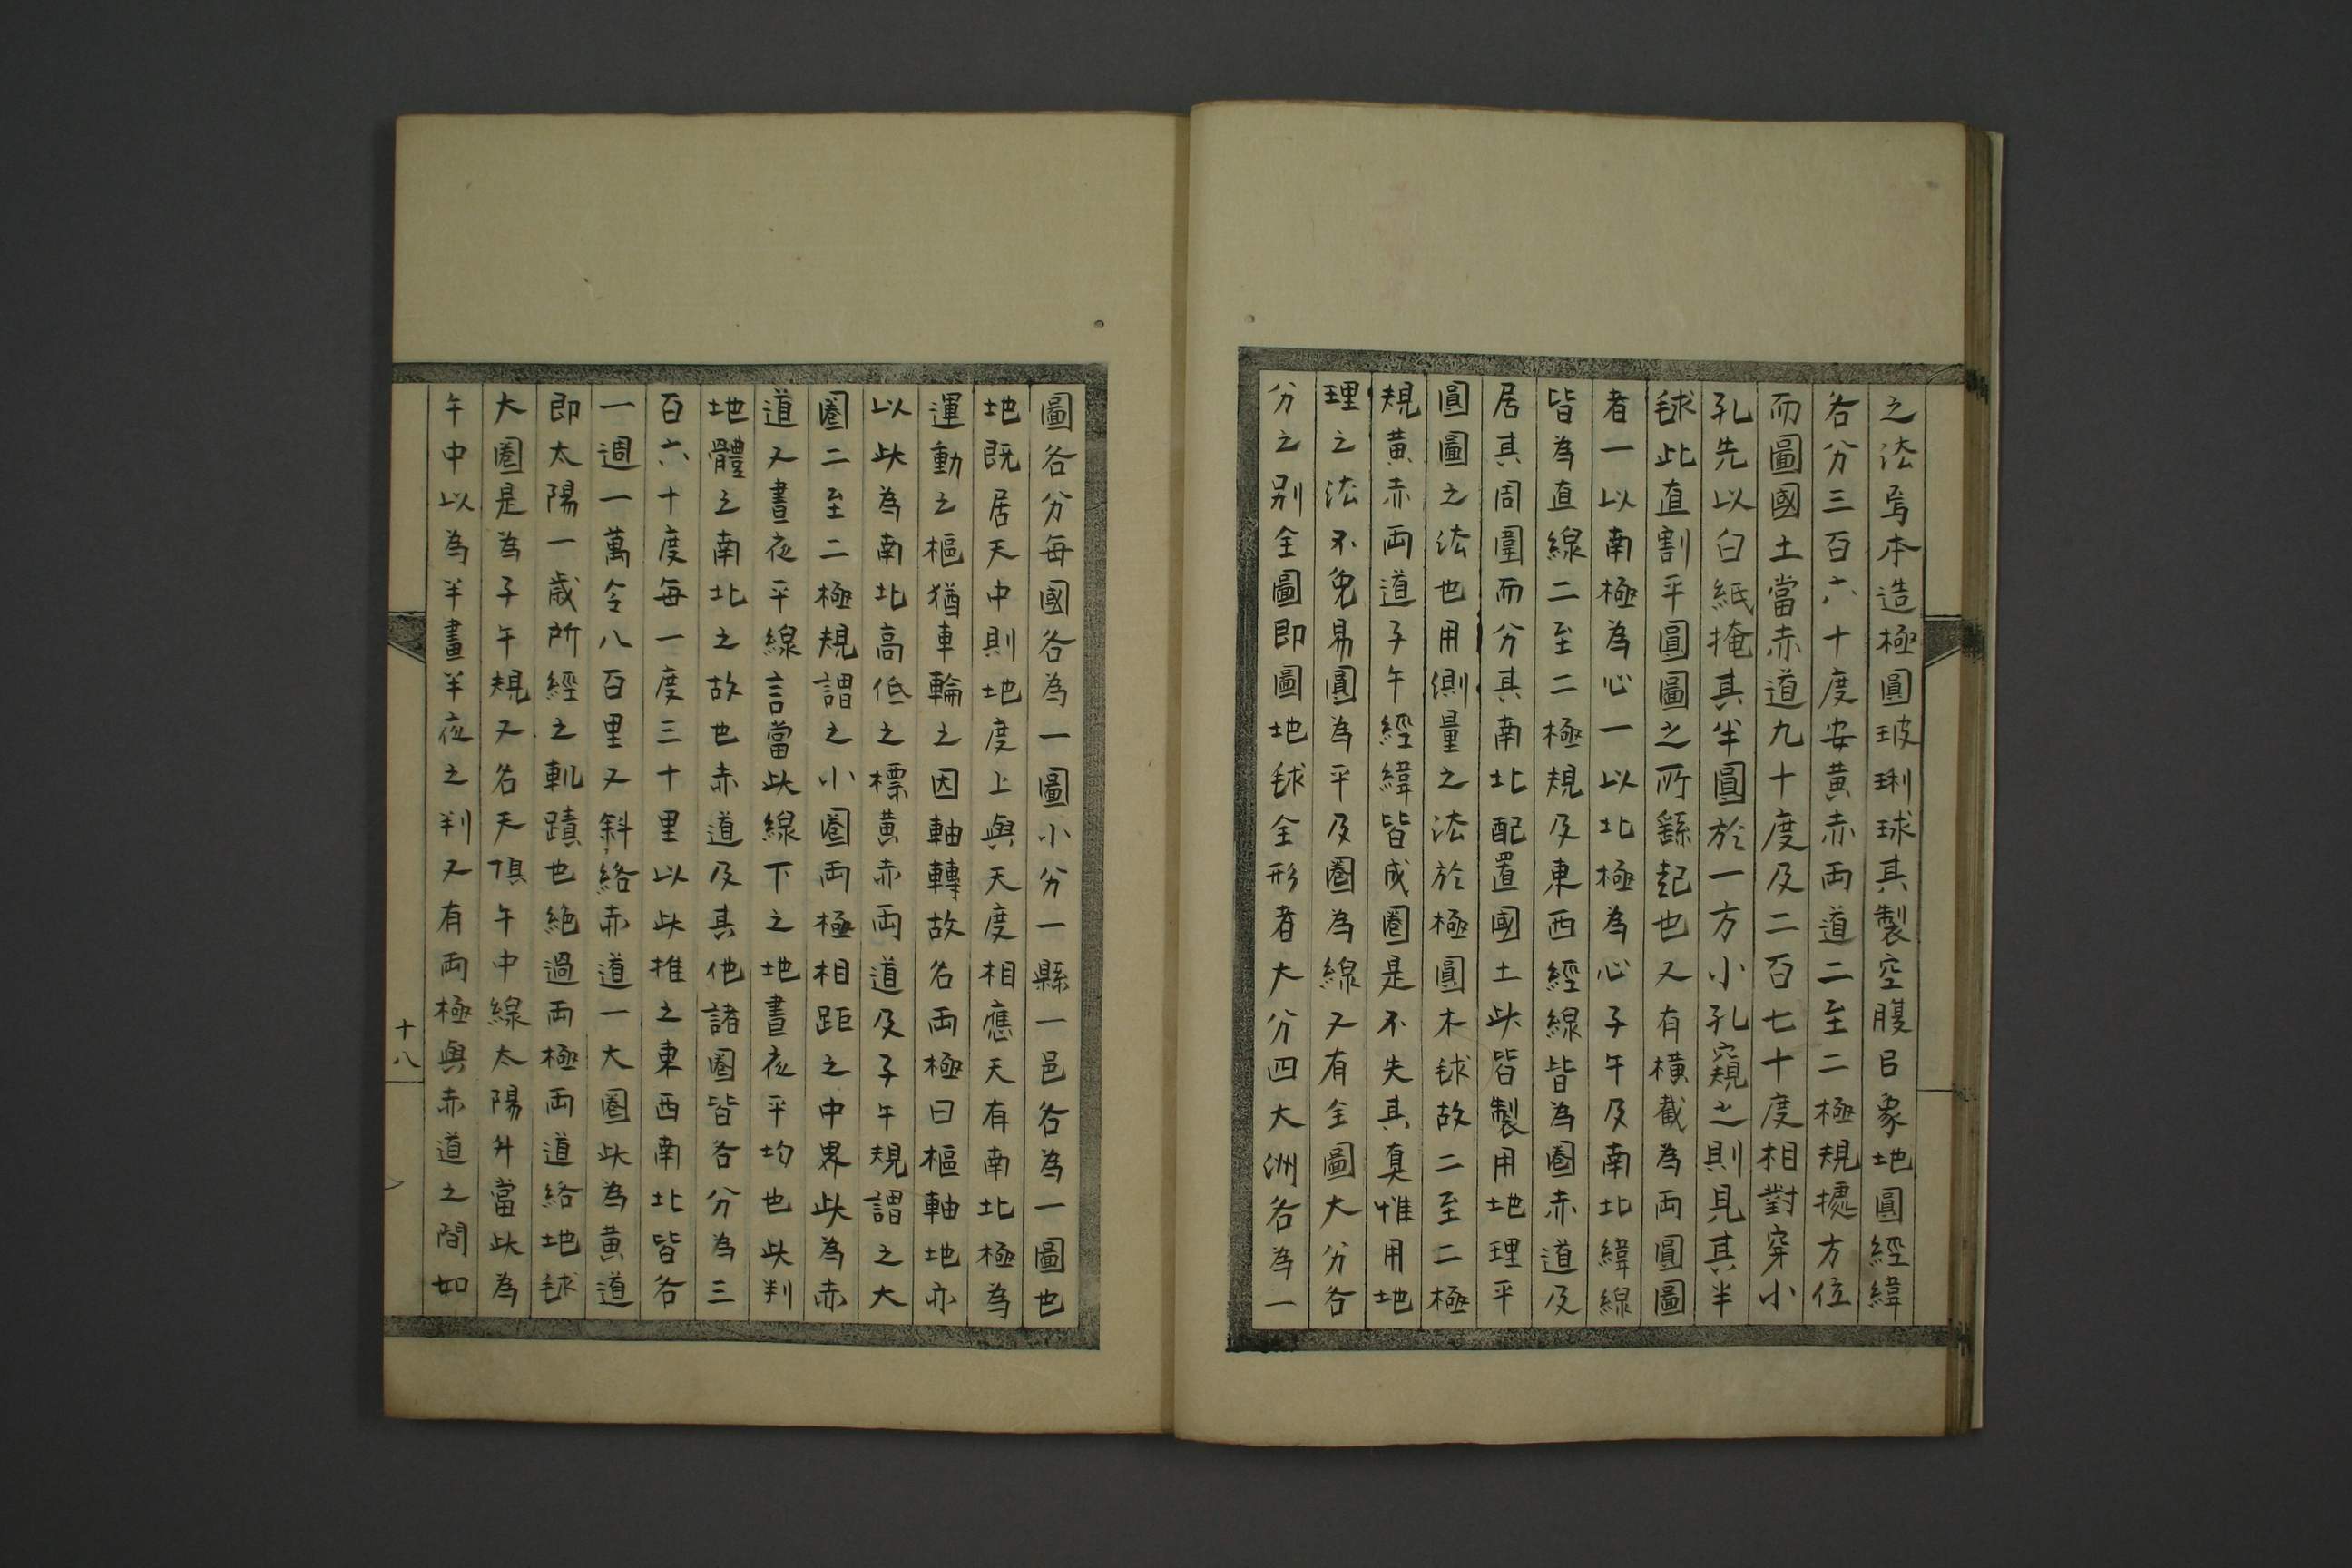 之法焉本造極圓玻瓈球其製空腹吕象地圓經緯
各分三百六十度安黄赤両道二至二極規摠方位
而圖國土當赤道九十度及二百七十度相對穿小
孔先以白紙掩其半圓於一方小孔窺之則見其半
毬此直割平圓圖之所繇起也又有橫截為両圓圖
者一以南極為心一以北極為心子午及南北緯線
皆為直線二至二極規及東西經線皆為圈赤道及
居其周圍而分其南北配置國土此皆製用地理平
圓圖之法也用側量之法於極圓木毬故二至二極
規黄赤両道子午經緯皆成圈是不失其真惟用地
理之法不免易圓為平及圈為線又有全圖大分各
分之别全圖即圖地毬全形者大分四大洲各為一
圖各分每國各為一圖小分一縣一邑各為一圖也
地既居天中則地度上與天度相應天有南北極為
運動之樞猶車輪之因軸轉故名両極曰樞軸地亦
以此為南北高低之標黄赤両道及子午規謂之大
圈二至二極規謂之小圈両極相距之中界此為赤
道又晝夜平線言當此線下之地晝夜平均也此判
地體之南北之故也赤道及其他諸圈皆各分為三
百六十度每一度三十里以此推之東西南北皆各
一週一萬令八百里又斜絡赤道一大圈此為黄道
即太陽一歲所經之軌蹟也絶過両極両道絡地毬
大圈是為子午規又名天惧午中線太陽升當此為
午中以為半晝半夜之判又有両極與赤道之間如
十八